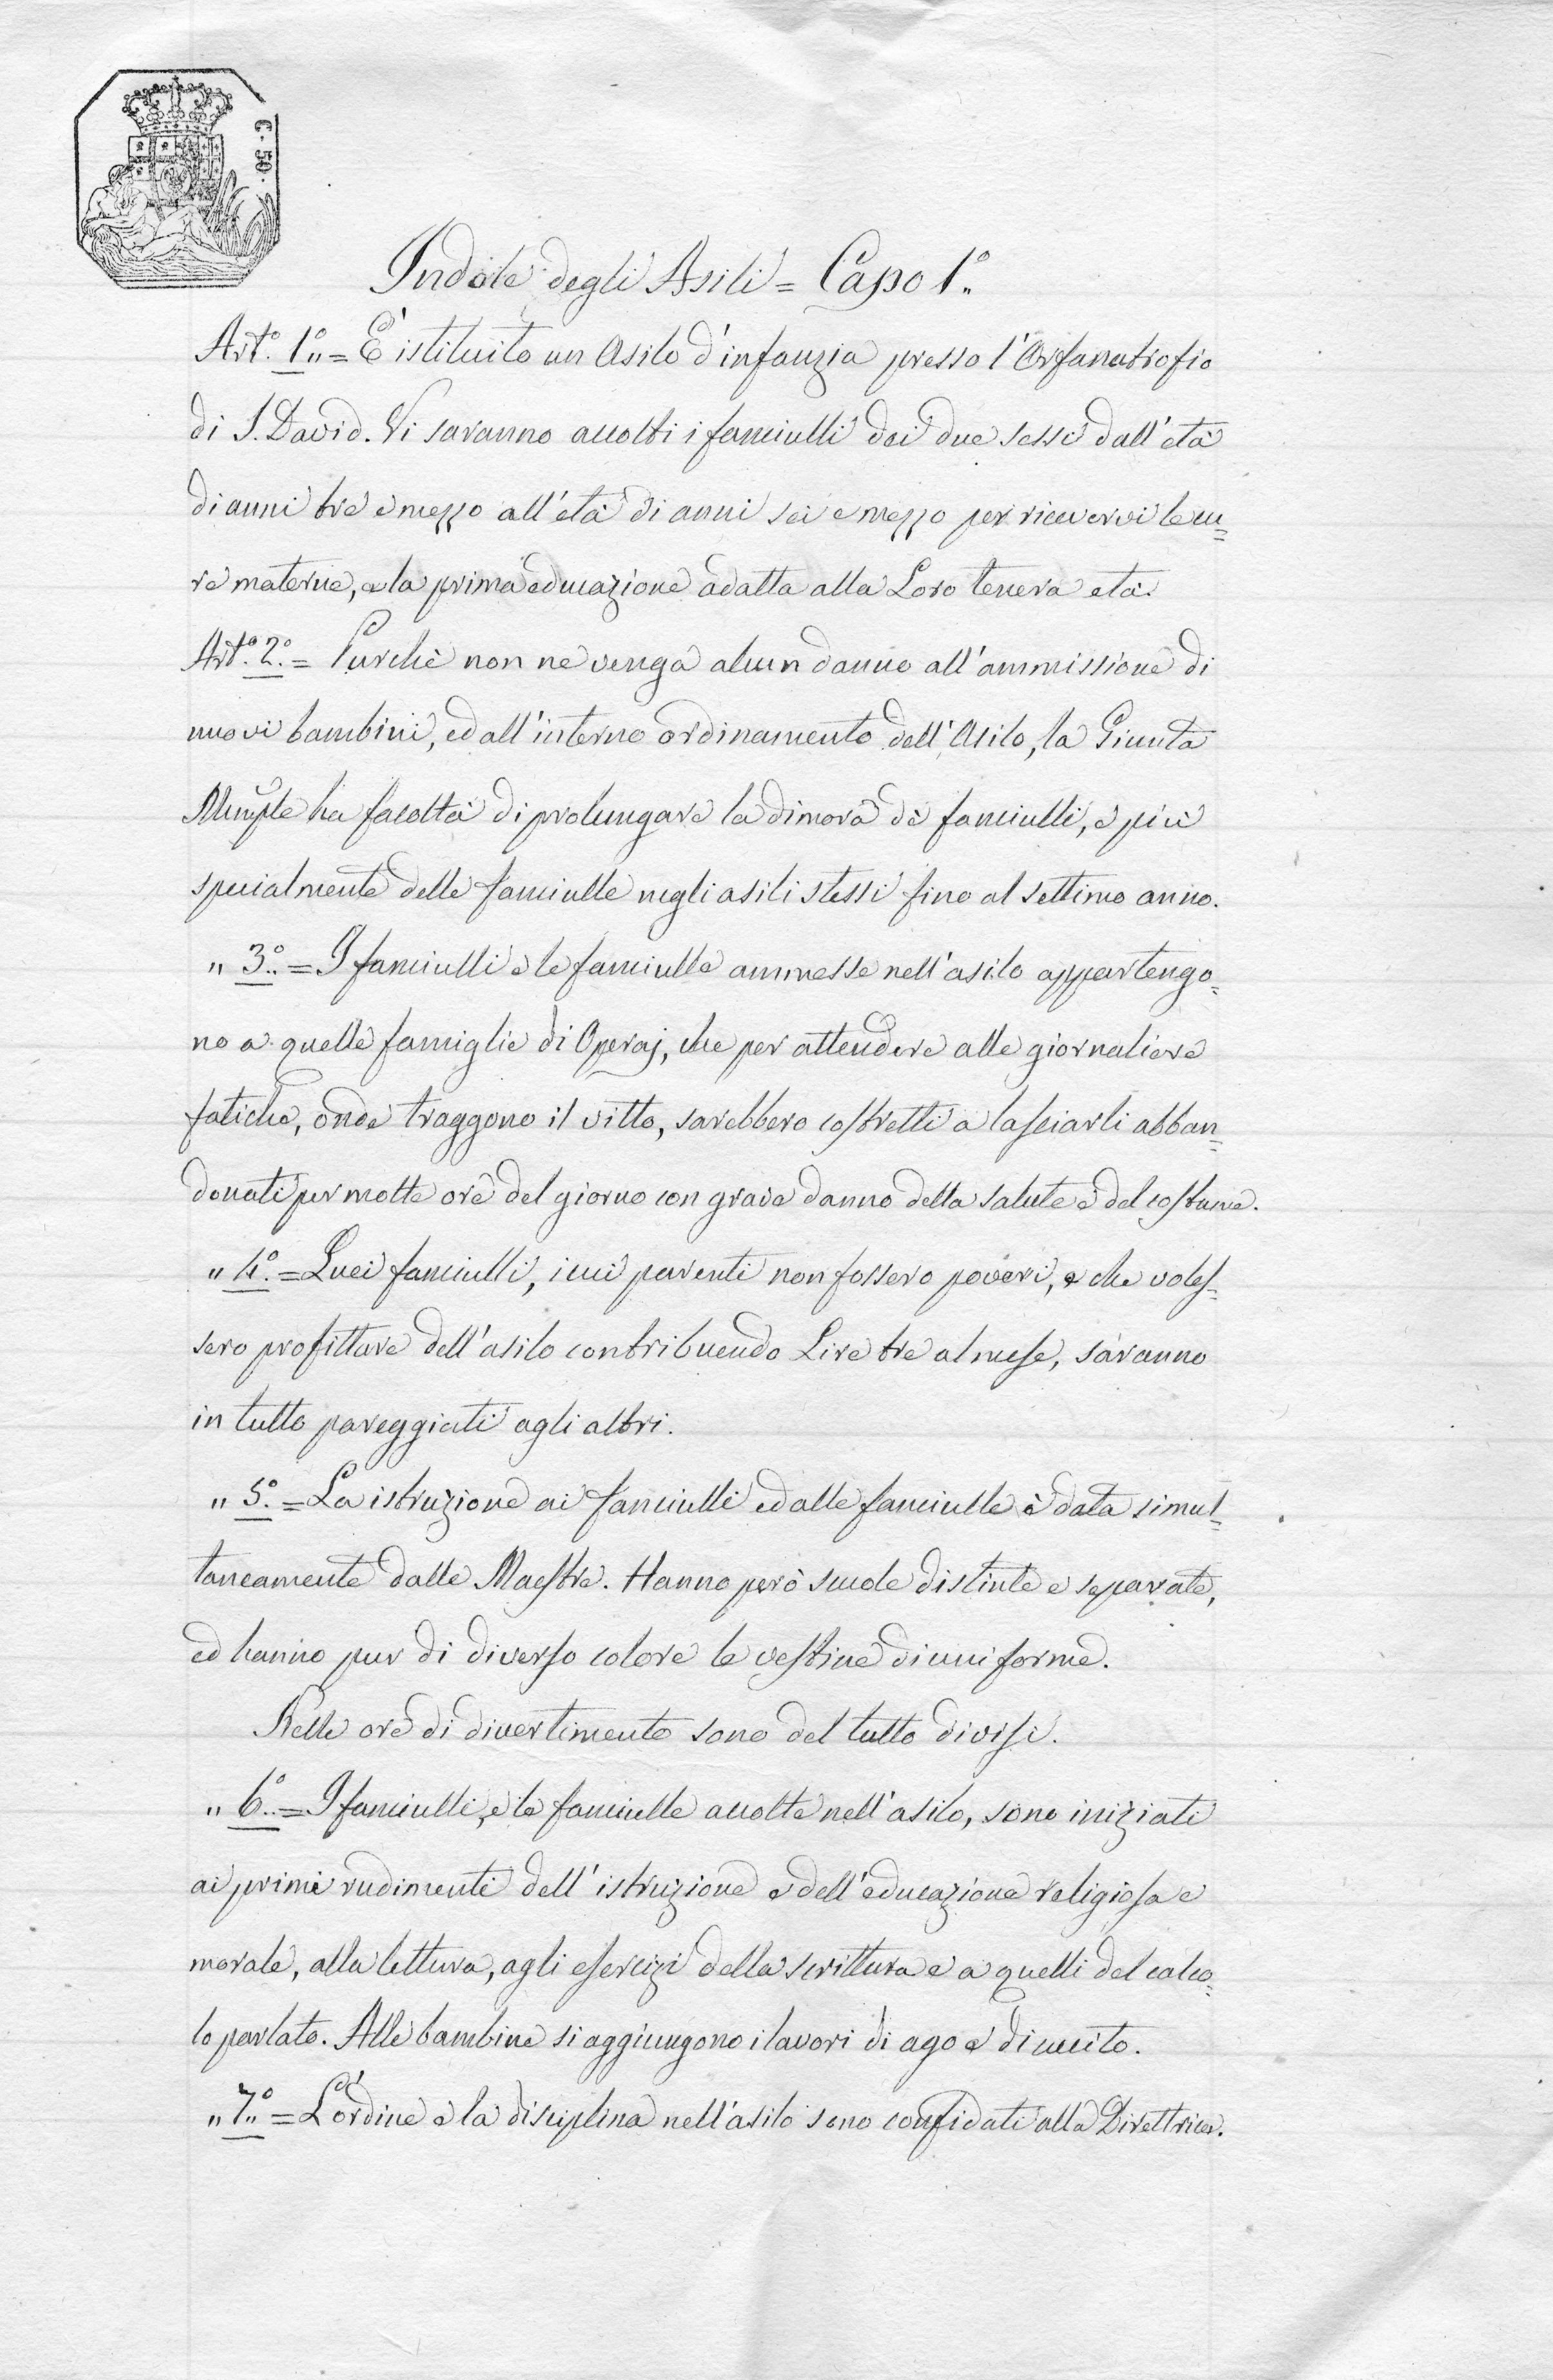 C. 50.
Indole degli Asili = Capo 1º„
Artº. 1º„ = È istituito un Asilo d'infanzia presso l'Orfanatrofio
di S. David. Vi saranno accolti i fanciulli dei due sessi dall'età
di anni tre e mezzo all'età di anni sei e mezzo per ricevervi le cu=
re materne, e la prima educazione adatta alla Loro tenera età.
Artº. 2º. = Purchè non ne venga alcun danno all'ammissione di
nuovi bambini, ed all'interno ordinamento dell'Asilo, la Giunta
Munple ha facoltà di prolungare la dimora dè fanciulli, e più
specialmente delle fanciulle negli asili stessi fino al settimo anno.
„ 3º.. = I fanciulli e le fanciulle ammesse nell'asilo appartengo=
no a quelle famiglie di Operaj, che per attendere alle giornaliere
fatiche, onde traggono il vitto, sarebbero costretti a lasciarli abban=
donati per molte ore del giorno con grave danno della salute e del costume.
„ 4º. = Quei fanciulli, i cui parenti non fossero poveri, e che voles=
sero profittare dell'asilo contribuendo Lire tre al mese, saranno
in tutto pareggiati agli altri.
„ 5º. = La istruzione ai fanciulli ed alle fanciulle è data simul=
taneamente dalle Maestre. Hanno però scuole distinte e separate,
ed hanno pur di diverso colore le vestine di uniforme.
Nelle ore di divertimento sono del tutto divisi.
„ 6º.. = I fanciulli, e le fanciulle accolte nell'asilo, sono iniziati
ai primi rudimenti dell'istruzione e dell'educazione religiosa e
morale, alla lettura, agli esercizi della scrittura e a quelli del calco=
lo parlato. Alle bambine si aggiungono i lavori di ago e di cucito.
„ 7º„ = L'ordine e la disciplina nell'asilo sono confidati alla Direttrice.